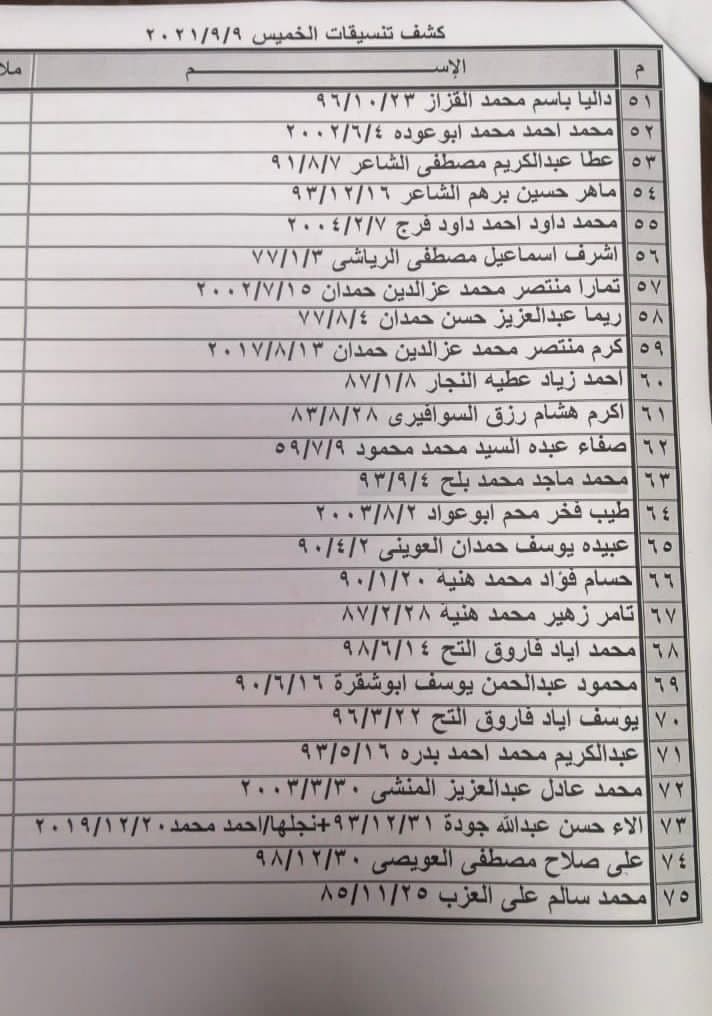 كشف تنسيقات الخميس ٢٠٢١/٩/٩
م الإســـم ملا
٥١ داليا باسم محمد القزاز ٩٦/١٠/٢٣
٥٢ محمد احمد محمد ابوعوده ٢٠٠٢/٦/٤
٥٣ عطا عبدالكريم مصطفى الشاعر ٩١/٨/٧
٥٤ ماهر حسين برهم الشاعر ٩٣/١٢/١٦
٥٥ محمد داود احمد داود فرج ٢٠٠٤/٢/٧
٥٦ اشرف اسماعيل مصطفى الرياشى ٧٧/١/٣
٥٧ تمارا منتصر محمد عزالدين حمدان ٢٠٠٢/٧/١٥
٥٨ ريما عبدالعزيز حسن حمدان ٧٧/٨/٤
٥٩ كرم منتصر محمد عزالدين حمدان ٢٠١٧/٨/١٣
٦٠ احمد زياد عطيه النجار ٨٧/١/٨
٦١ اكرم هشام رزق السوافيرى ٨٣/٨/٢٨
٦٢ صفاء عبده السيد محمد محمود ٥٩/٧/٩
٦٣ محمد ماجد محمد بلح ٩٣/٩/٤
٦٤ طيب فخر محم ابوعواد ٢٠٠٣/٨/٢
٦٥ عبيده يوسف حمدان العوينى ٩٠/٤/٢
٦٦ حسام فؤاد محمد هنية ٩٠/١/٢٠
٦٧ تامر زهير محمد هنية ٨٧/٢/٢٨
٦٨ محمد اياد فاروق التح ٩٨/٦/١٤
٦٩ محمود عبدالحمن يوسف ابوشقرة ٩٠/٦/١٦
٧٠ يوسف اياد فاروق التح ٩٦/٣/٢٢
٧١ عبدالكريم محمد احمد بدره ٩٣/٥/١٦
٧٢ محمد عادل عبدالعزيز المنشى ٢٠٠٣/٣/٣٠
٧٣ الاء حسن عبدالله جودة ٩٣/١٢/٣١+نجلها/احمد محمد٢٠١٩/١٢/٢٠
٧٤ على صلاح مصطفى العويصى ٩٨/١٢/٣٠
٧٥ محمد سالم على العزب ٨٥/١١/٢٥